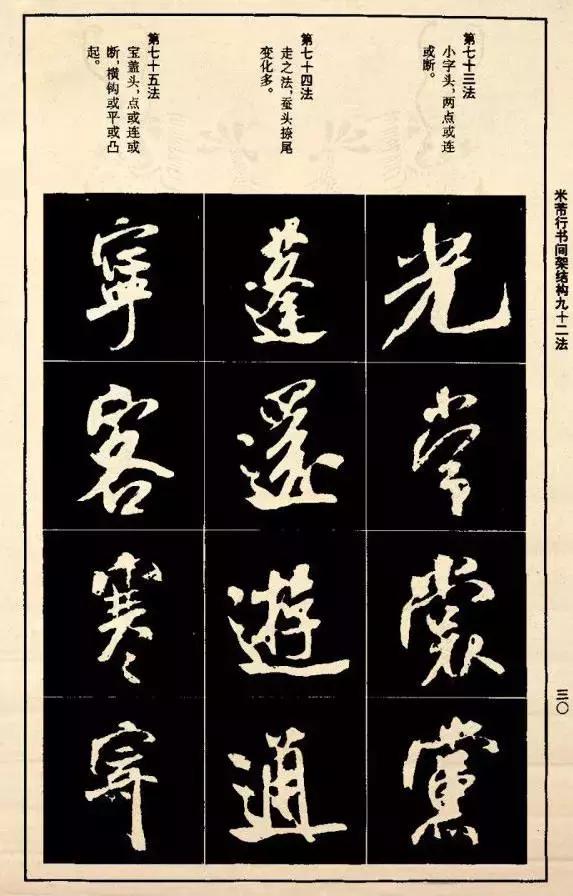 米芾行书间架结构九十二法
三〇
第七十三法
小字头，两点或连
或断。
光常裳黨
第七十四法
走之法，蚕头捺尾
变化多。
蓬還遊通
第七十五法
宝盖头，点或连或
断，横钩或平或凸
起。
寧客寒